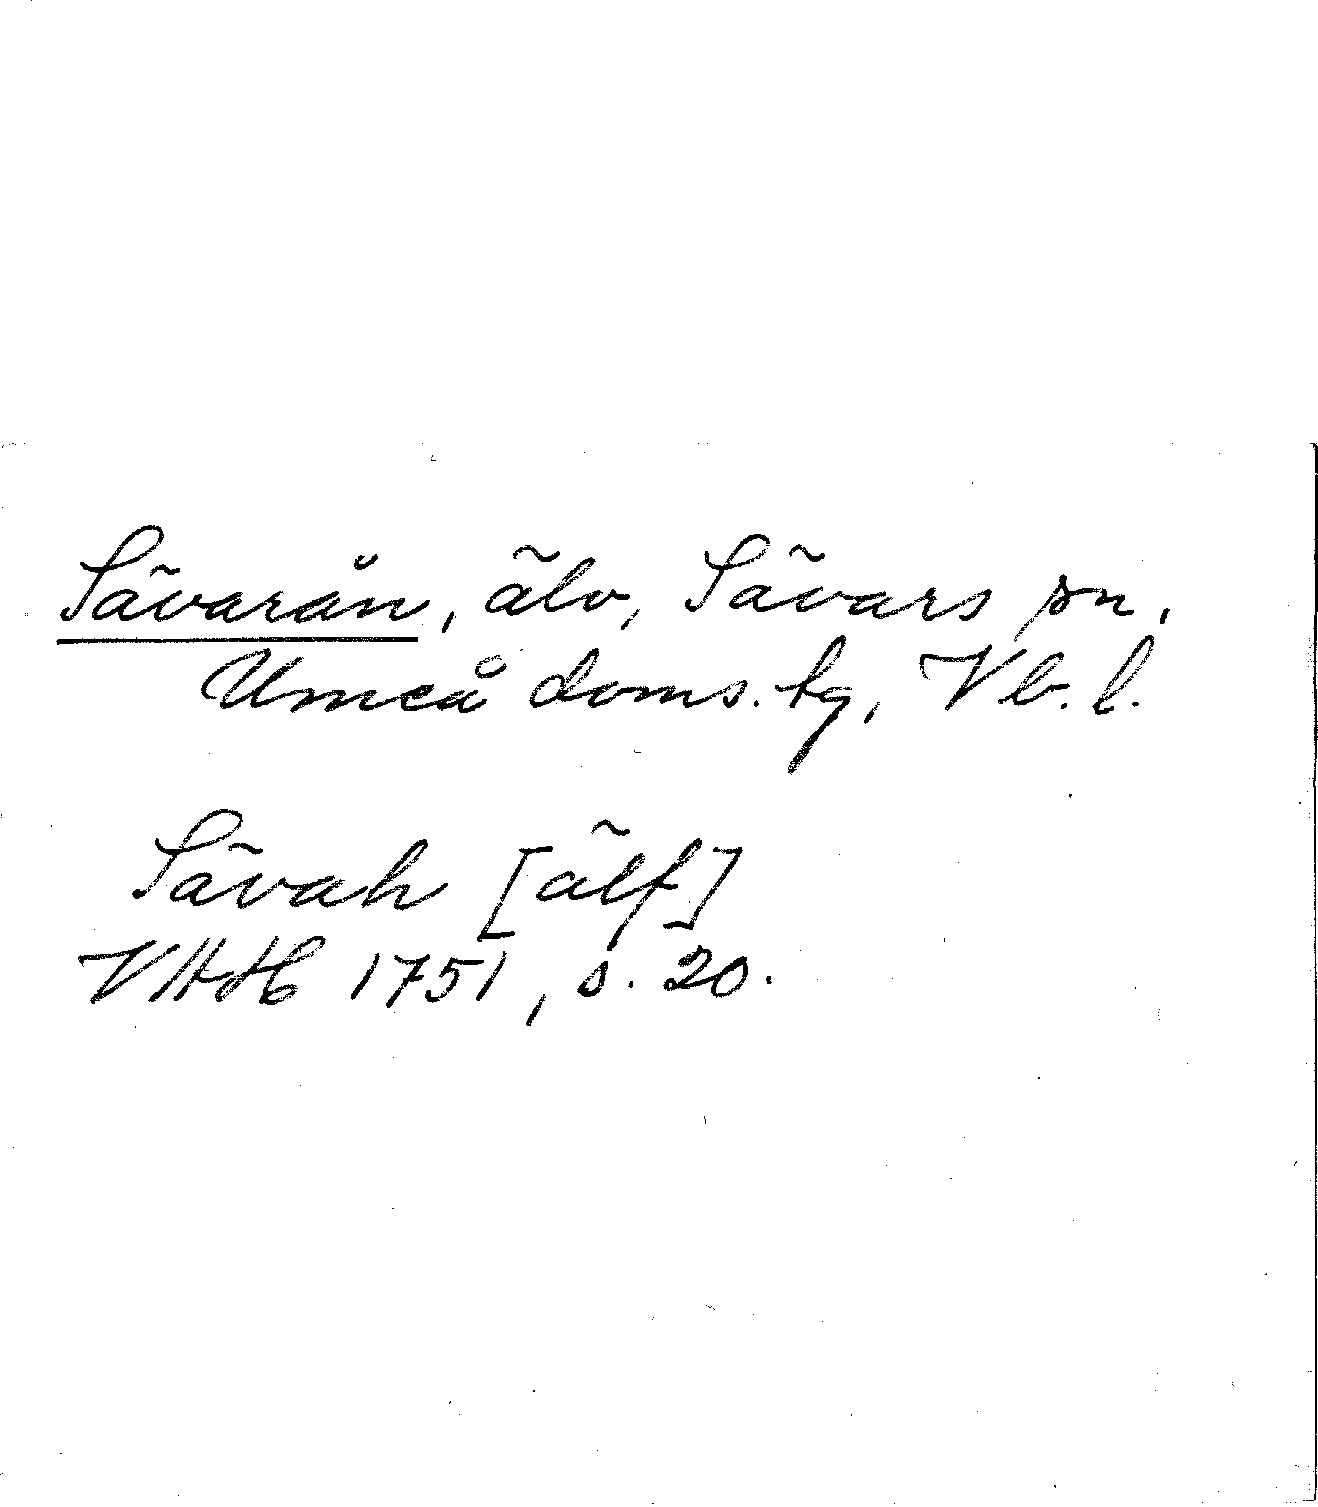 Sävarån, älv, Sävars sn,
Umeå doms. tg, Vb. l.
Sävah [älf]
VHAH 1751, s. 20.